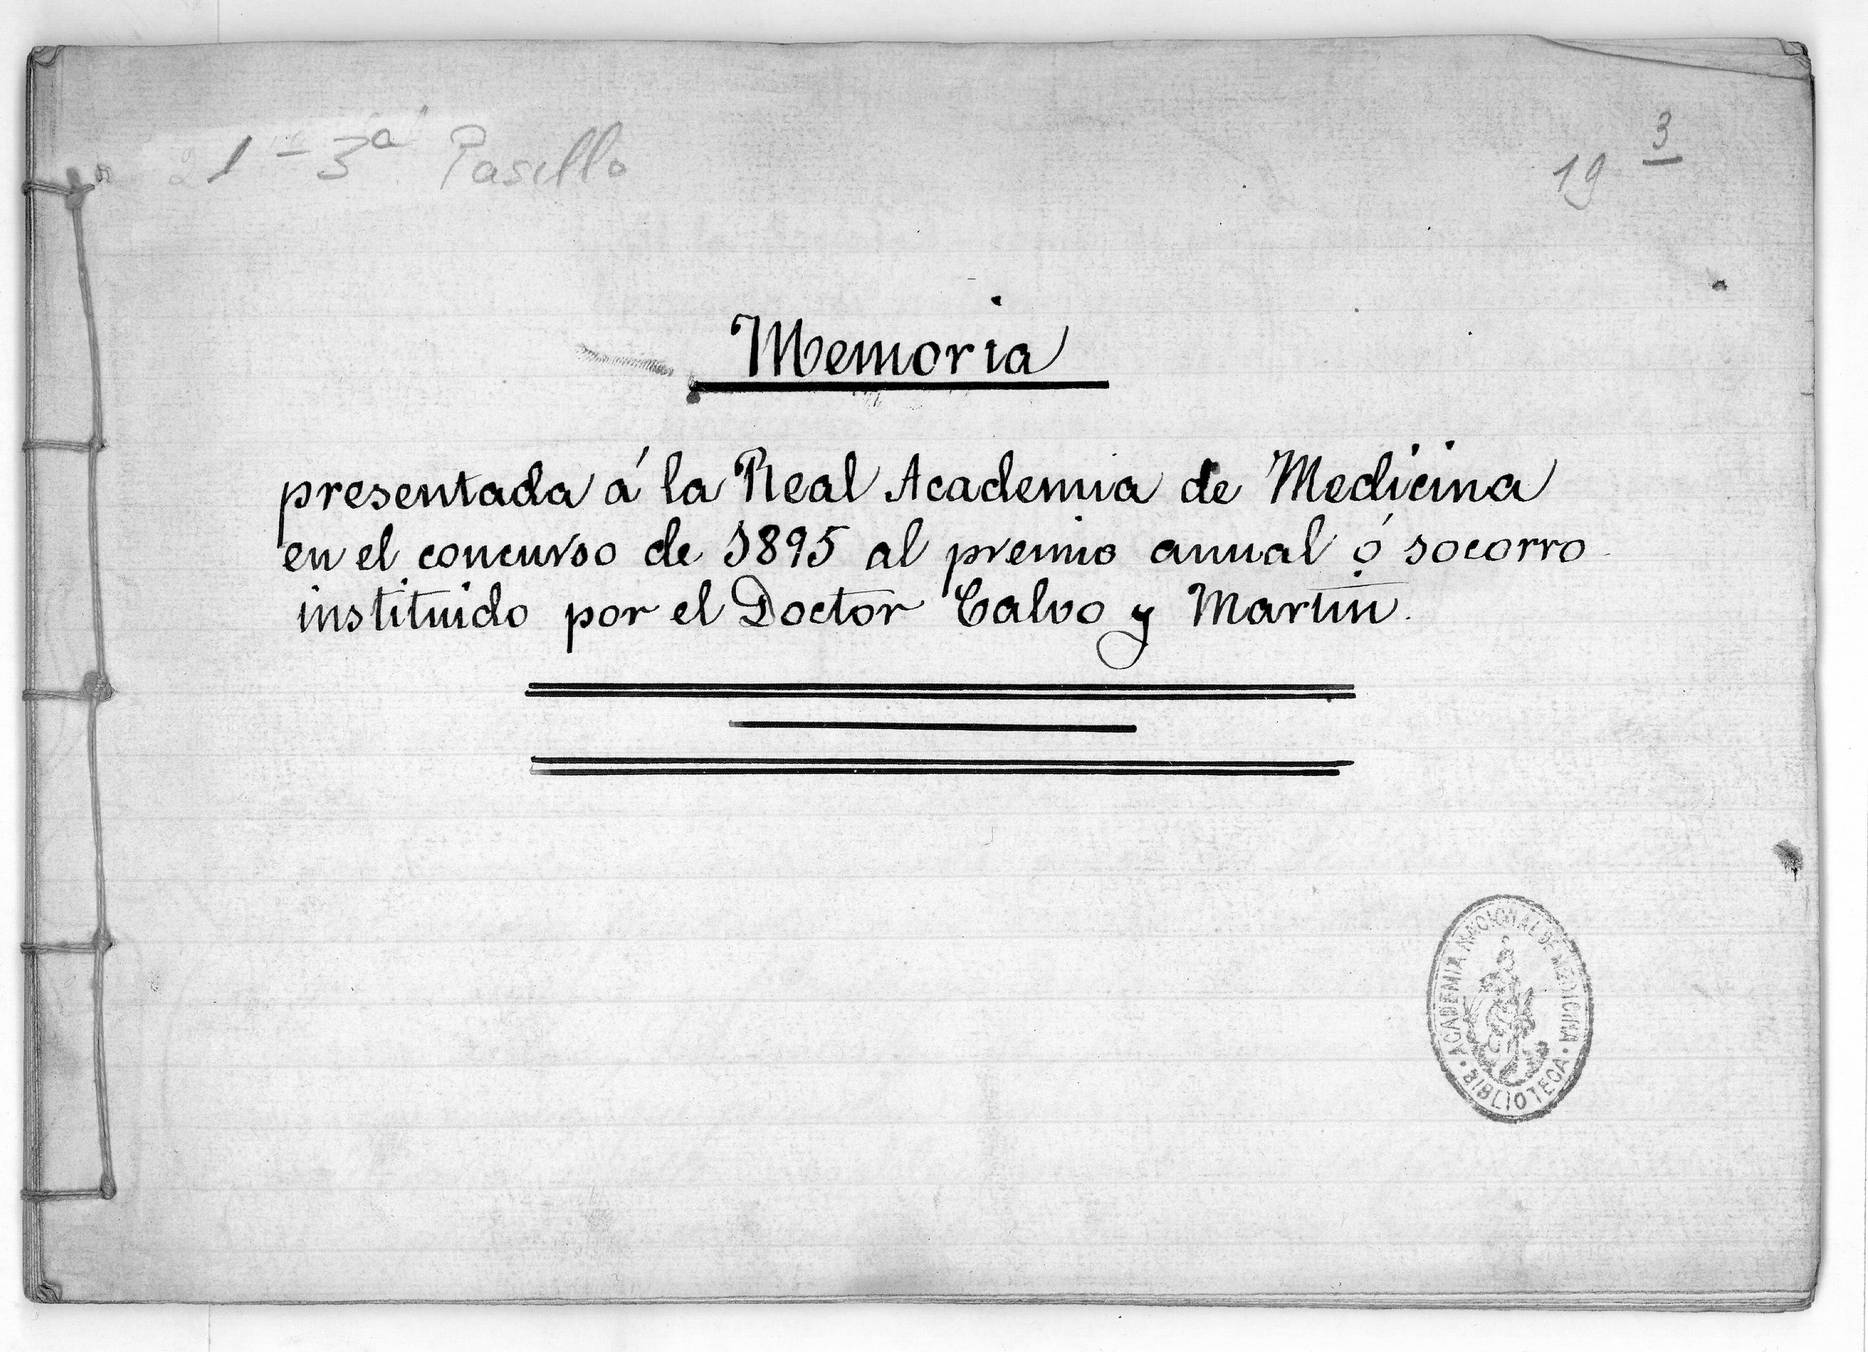 1 - 3ª Pasillo
19 3
Memoria
presentada á la Real Academia de Medicina
en el concurso de 1895 al premio anual ó socorro
instituido por el Doctor Calvo y Martin.
ACADEMIA NACIONAL DE MEDICINA
BIBLIOTECA